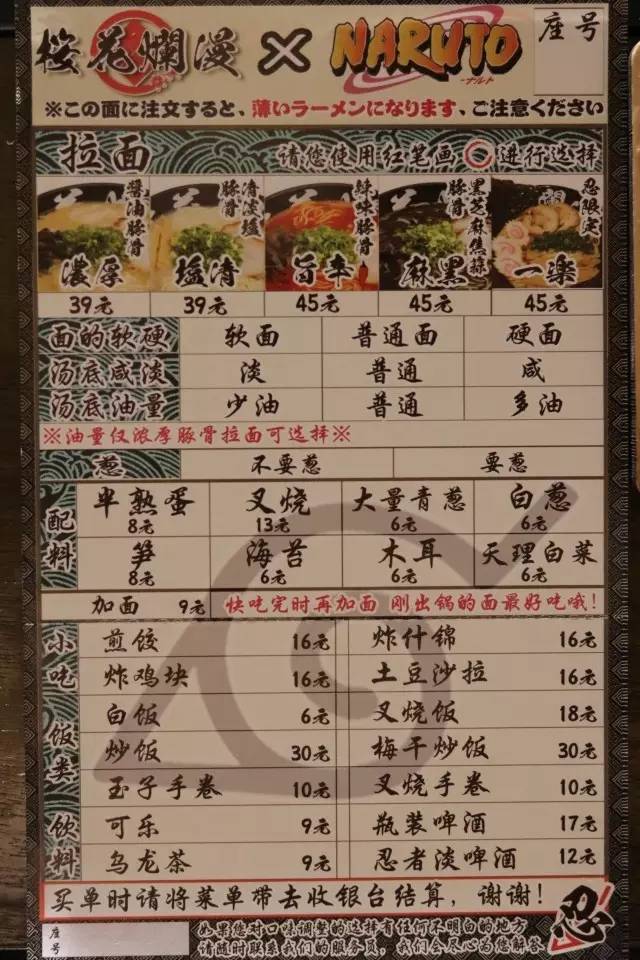 桜花爛漫 × NARUTO 座号
ナルト
※この面に注文すると、薄いラーメンになります、ご注意ください
拉面 请您使用红笔画○进行选择
醤油豚骨 濃厚
清淡塩豚骨 塩清
辣味豚骨 旨辛
黑芝麻焦蒜豚骨 麻黑
忍限定 一楽
39元 39元 45元 45元 45元
面的软硬 软面 普通面 硬面
汤底咸淡 淡 普通 咸
汤底油量 少油 普通 多油
※油量仅浓厚豚骨拉面可选择※
葱 不要葱 要葱
配料
半熟蛋 叉烧 大量青葱 白葱
8元 13元 6元 6元
笋 海苔 木耳 天理白菜
8元 6元 6元 6元
加面 9元 快吃完时再加面 刚出锅的面最好吃哦!
小吃
煎饺 16元 炸什锦 16元
炸鸡块 16元 土豆沙拉 16元
饭类
白饭 6元 叉烧饭 18元
炒饭 30元 梅干炒饭 30元
玉子手卷 10元 叉烧手卷 10元
饮料
可乐 9元 瓶装啤酒 17元
乌龙茶 9元 忍者淡啤酒 12元
买单时请将菜单带去收银台结算,谢谢! 忍
座号
如果您对口味调整的选择有任何不明白的地方
请随时联系我们的服务员,我们会尽心为您解答